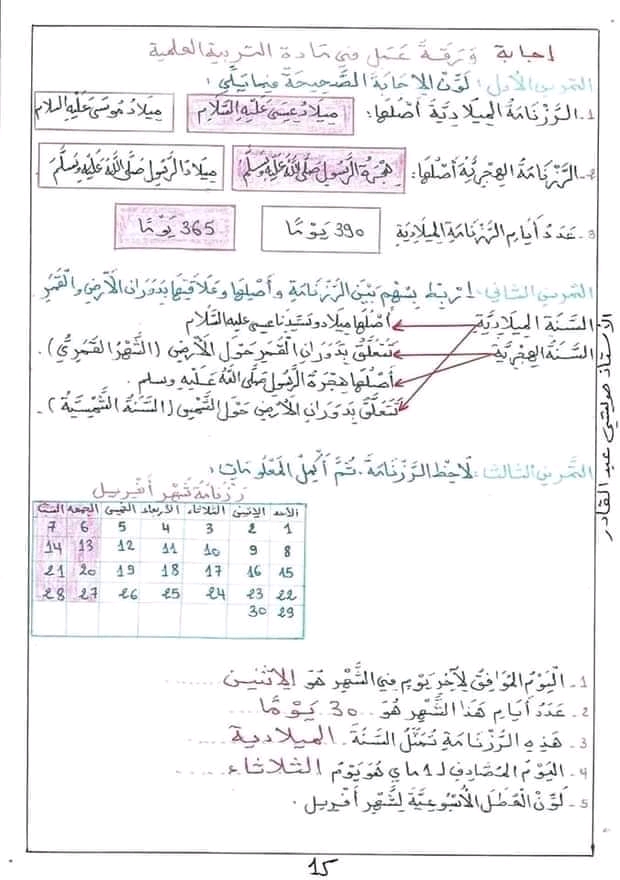 إجابة ورقة عمل في مادة التربية العلمية
التمرين الأول: لوّن الإجابة الصّحيحة فيما يلي:
1- الرّزنامة الميلادية أصلها: ميلاد عيسى عليه السّلام ميلاد موسى عليه السلام
2- الرّزنامة الهجريّة أصلها: هجرة الرّسول صلّى اللّه عليه وسلّم ميلاد الرّسول صلّى اللّه عليه وسلّم
3- عدد أيام الرزنامة الميلادية 390 يومًا 365 يومًا
التمرين الثاني: اربط بسهم بين الرّزنامة وأصلها وعلاقتها بدوران الأرض والقمر
السّنة الميلاديّة أصلها ميلاد سيّدنا عيسى عليه السّلام
السّنة الهجريّة تتعلّق بدوران القمر حول الأرض (الشّهر القمريّ).
أصلها هجرة الرّسول صلّى اللّه عليه وسلم.
تتعلّق بدوران الأرض حول الشّمس (السّنة الشّمسيّة).
التّمرين الثالث: لاحظ الرّزنامة. ثمّ أكمل المعلومات:
رزنامة شهر أفريل
الأحد الإثنين الثلاثاء الأربعاء الخميس الجمعة السبت
1 2 3 4 5 6 7
8 9 10 11 12 13 14
15 16 17 18 19 20 21
22 23 24 25 26 27 28
29 30
1- اليوم الموافق لآخر يوم في الشّهر هو الإثنين.......
2- عدد أيام هذا الشّهر هو.. 30 يومًا....
3- هذه الرّزنامة تمثّل السّنة. الميلادية.....
4- اليوم المصادف لـ 1 ماي هو يوم الثلاثاء.....
5- لوّن العطل الأسبوعيّة لشهر أفريل.
الأستاذ صويشي عبد القادر
15